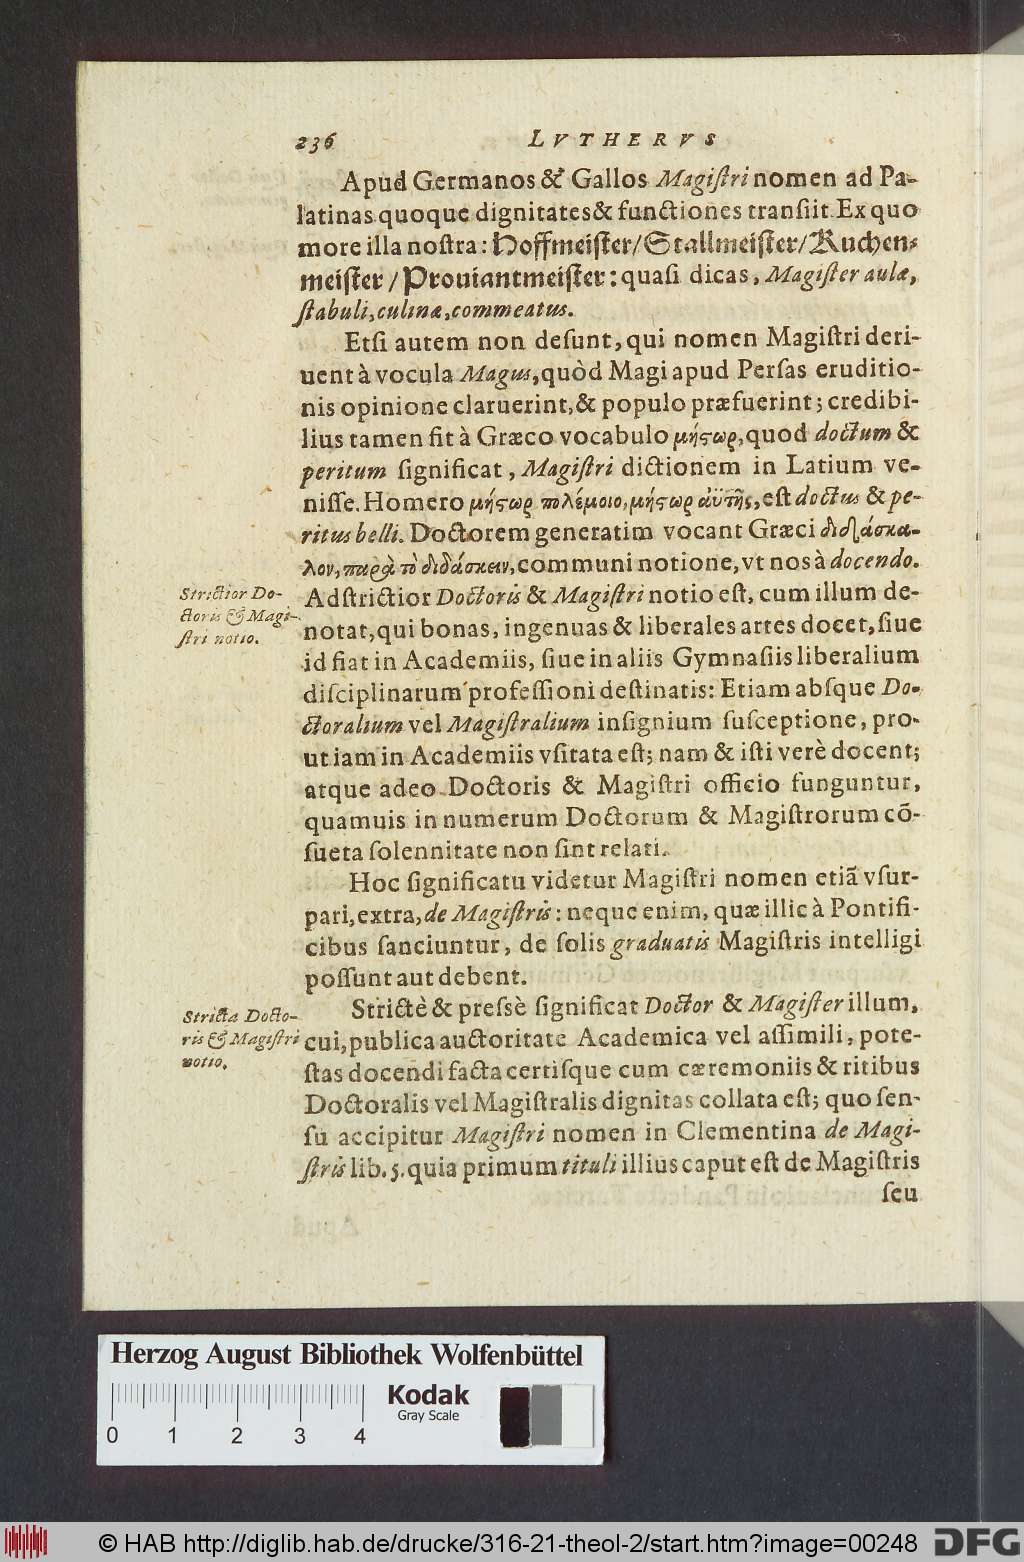 236 LVTHERVS
Apud Germanos & Gallos Magiſtri nomen ad Pa-
latinas quoque dignitates & functiones tranſiit. Ex quo
more illa noſtra: Hoffmeiſter/Stallmeiſter/Kuchen-
meiſter/Prouiantmeiſter: quaſi dicas, Magiſter aulæ,
ſtabuli, culinæ, commeatus.
Etſi autem non deſunt, qui nomen Magiſtri deri-
uent à vocula Magus, quòd Magi apud Perſas eruditio-
nis opinione claruerint, & populo præfuerint; credibi-
lius tamen fit à Græco vocabulo μήϛωρ, quod doctum &
peritum ſignificat, Magiſtri dictionem in Latium ve-
niſſe. Homero μήϛωρ πολέμοιο, μήϛωρ ἀϋτῆς, eſt doctus & pe-
ritus belli. Doctorem generatim vocant Græci διδάσκα-
λον, παρὰ τὸ διδάσκειν, communi notione, vt nos à docendo.
Strictior Do-
ctoris & Magi-
ſtri notio.
Adſtrictior Doctoris & Magiſtri notio eſt, cum illum de-
notat, qui bonas, ingenuas & liberales artes docet, ſiue
id fiat in Academiis, ſiue in aliis Gymnaſiis liberalium
diſciplinarum profeſſioni deſtinatis: Etiam abſque Do-
ctoralium vel Magiſtralium inſignium ſuſceptione, pro-
ut iam in Academiis vſitata eſt; nam & iſti verè docent;
atque adeo Doctoris & Magiſtri officio funguntur,
quamuis in numerum Doctorum & Magiſtrorum cõ-
ſueta ſolennitate non ſint relati.
Hoc ſignificatu videtur Magiſtri nomen etiã vſur-
pari, extra, de Magiſtris: neque enim, quæ illic à Pontifi-
cibus ſanciuntur, de ſolis graduatis Magiſtris intelligi
poſſunt aut debent.
Stricta Docto-
ris & Magiſtri
notio.
Strictè & preſsè ſignificat Doctor & Magiſter illum,
cui, publica auctoritate Academica vel aſſimili, pote-
ſtas docendi facta certiſque cum cæremoniis & ritibus
Doctoralis vel Magiſtralis dignitas collata eſt; quo ſen-
ſu accipitur Magiſtri nomen in Clementina de Magi-
ſtris lib. 5. quia primum tituli illius caput eſt de Magiſtris
ſeu
Herzog August Bibliothek Wolfenbüttel
Kodak
Gray Scale
0 1 2 3 4
© HAB http://diglib.hab.de/drucke/316-21-theol-2/start.htm?image=00248
DFG